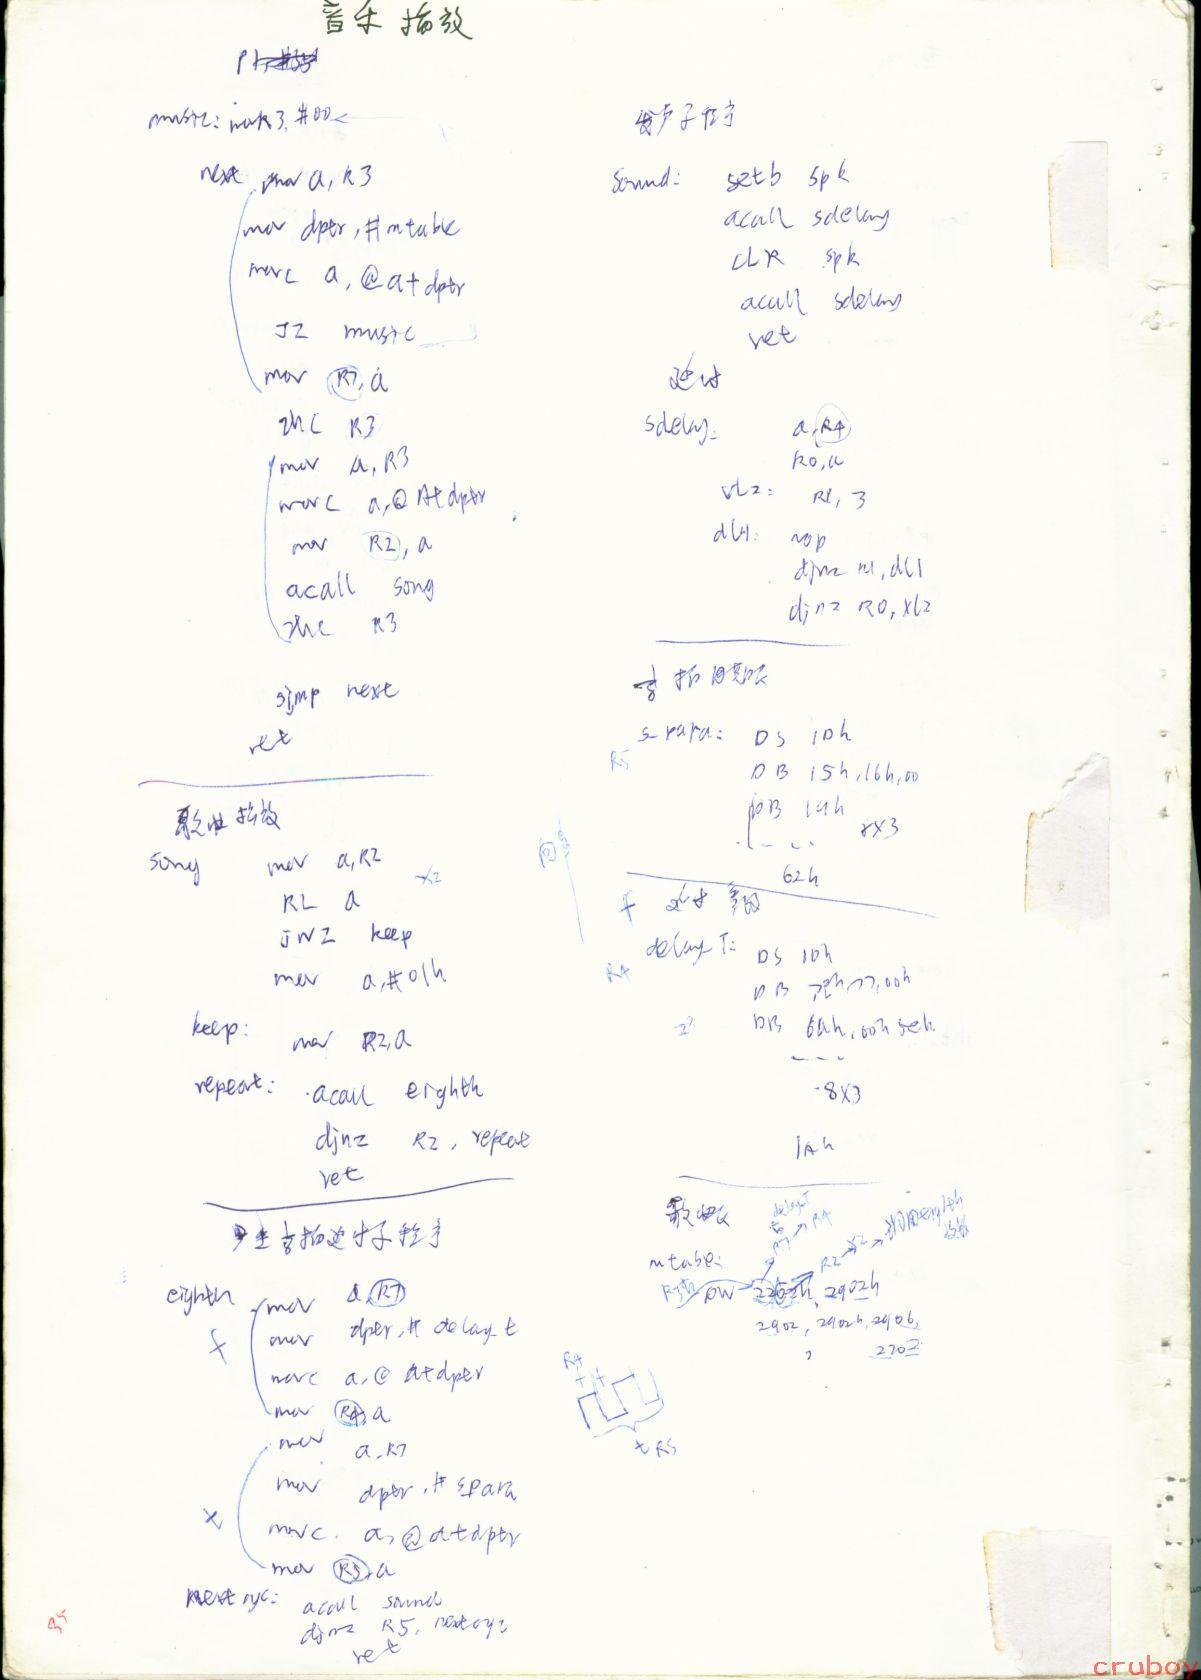 音乐播放
music: mov R3, #00
next mov a, R3
mov dptr, #mtable
movc a, @a+dptr
JZ music
mov R7, a
inc R3
mov a, R3
movc a, @A+dptr
mov R2, a
acall song
inc R3
sjmp next
ret
歌曲播放
song mov a, R2
RL a x2
JNZ keep
mov a, #01h
keep: mov R2, a
repeat: acall eighth
djnz R2, repeat
ret
产生音拍延时子程序
eighth mov a, R7
mov dptr, # delay t
f
movc a, @ a+dptr
mov R4, a
mov a, R7
mov dptr, # spara
t
movc a, @a+dptr
mov R5, a
next cyc: acall sound
djnz R5, next cyc
ret
R5
发声子程序
sound: setb spk
acall sdelay
CLR spk
acall sdelay
ret
延时
sdelay: a, R4
R0, a
R1, 3
dl1: nop
djnz R1, dl1
djnz R0, xl2
音拍
s-para: DS 10h
R5
DB 15h, 16h, 00
DB 19h
8x3
62h
f 延时
delay T: DS 10h
R4
DB 00h
DB 00h
8X3
1Ah
歌曲
delayT
R7 → R4
R2 x2 → eighth
mtable:
R3 DW 2202h, 2902h
2902, 2902h, 2906,
2702
R4
t t
t R5
cruboy